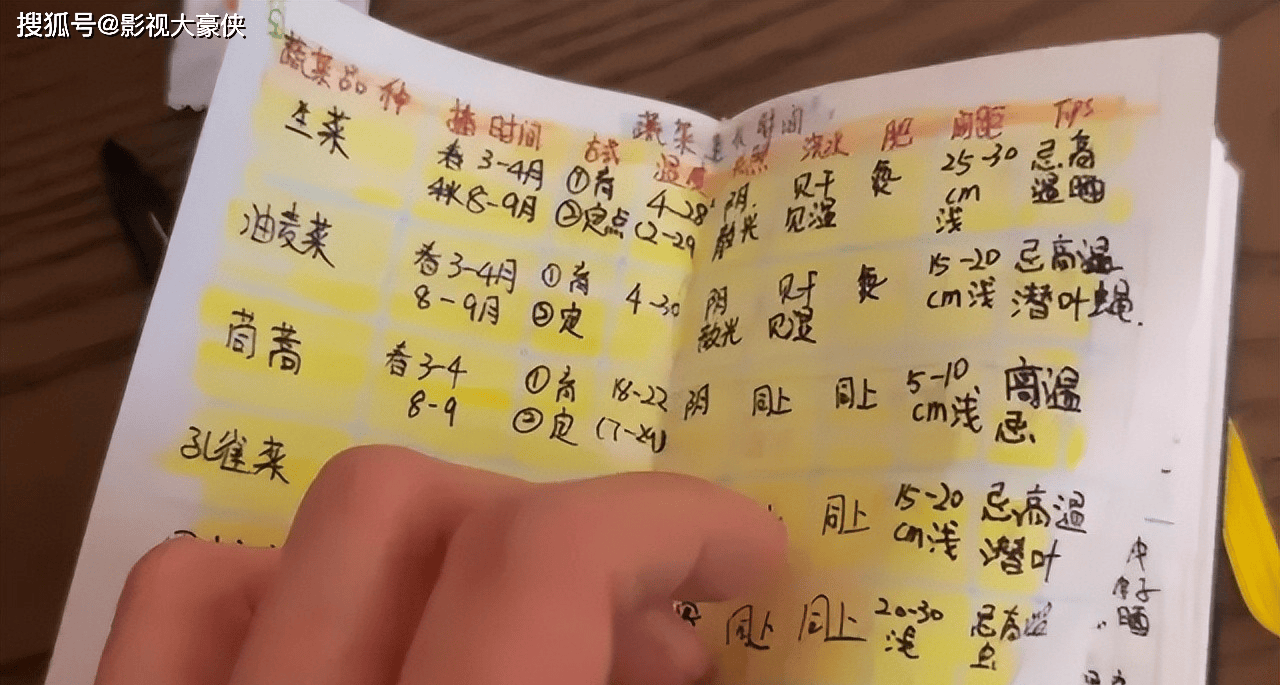 搜狐号@影视大豪侠
蔬菜生长时间
蔬菜品种 播时间 方式 温度 光照 浇水 肥 间距 Tips
生菜 春3-4月 ①育 4-28 阴. 见干 氮 25-30 忌高
秋8-9月 ②定点 (2-29 散光 见湿 cm 温晒
浅
油麦菜 春3-4月 ①育 4-30 阴 见干 氮 15-20 忌高温
8-9月 ②定 散光 见湿 cm浅 潜叶蝇.
茼蒿 春3-4 ①育 18-22 阴 同上 同上 5-10 高温
8-9 ②定 (7-29) cm浅 忌.
孔雀菜 同上 15-20 忌高温
cm浅 潜叶
同上 同上 20-30 忌高温
浅 虫
晒